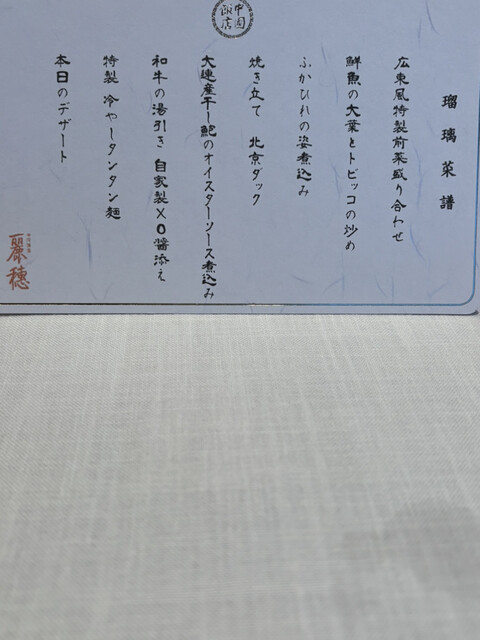 中国飯店
瑠璃菜譜
広東風特製前菜盛り合わせ
鮮魚の大葉とトビッコの炒め
ふかひれの姿煮込み
焼き立て 北京ダック
大連産干し鮑のオイスターソース煮込み
和牛の湯引き 自家製XO醤添え
特製 冷やしタンタン麺
本日のデザート
麗穂